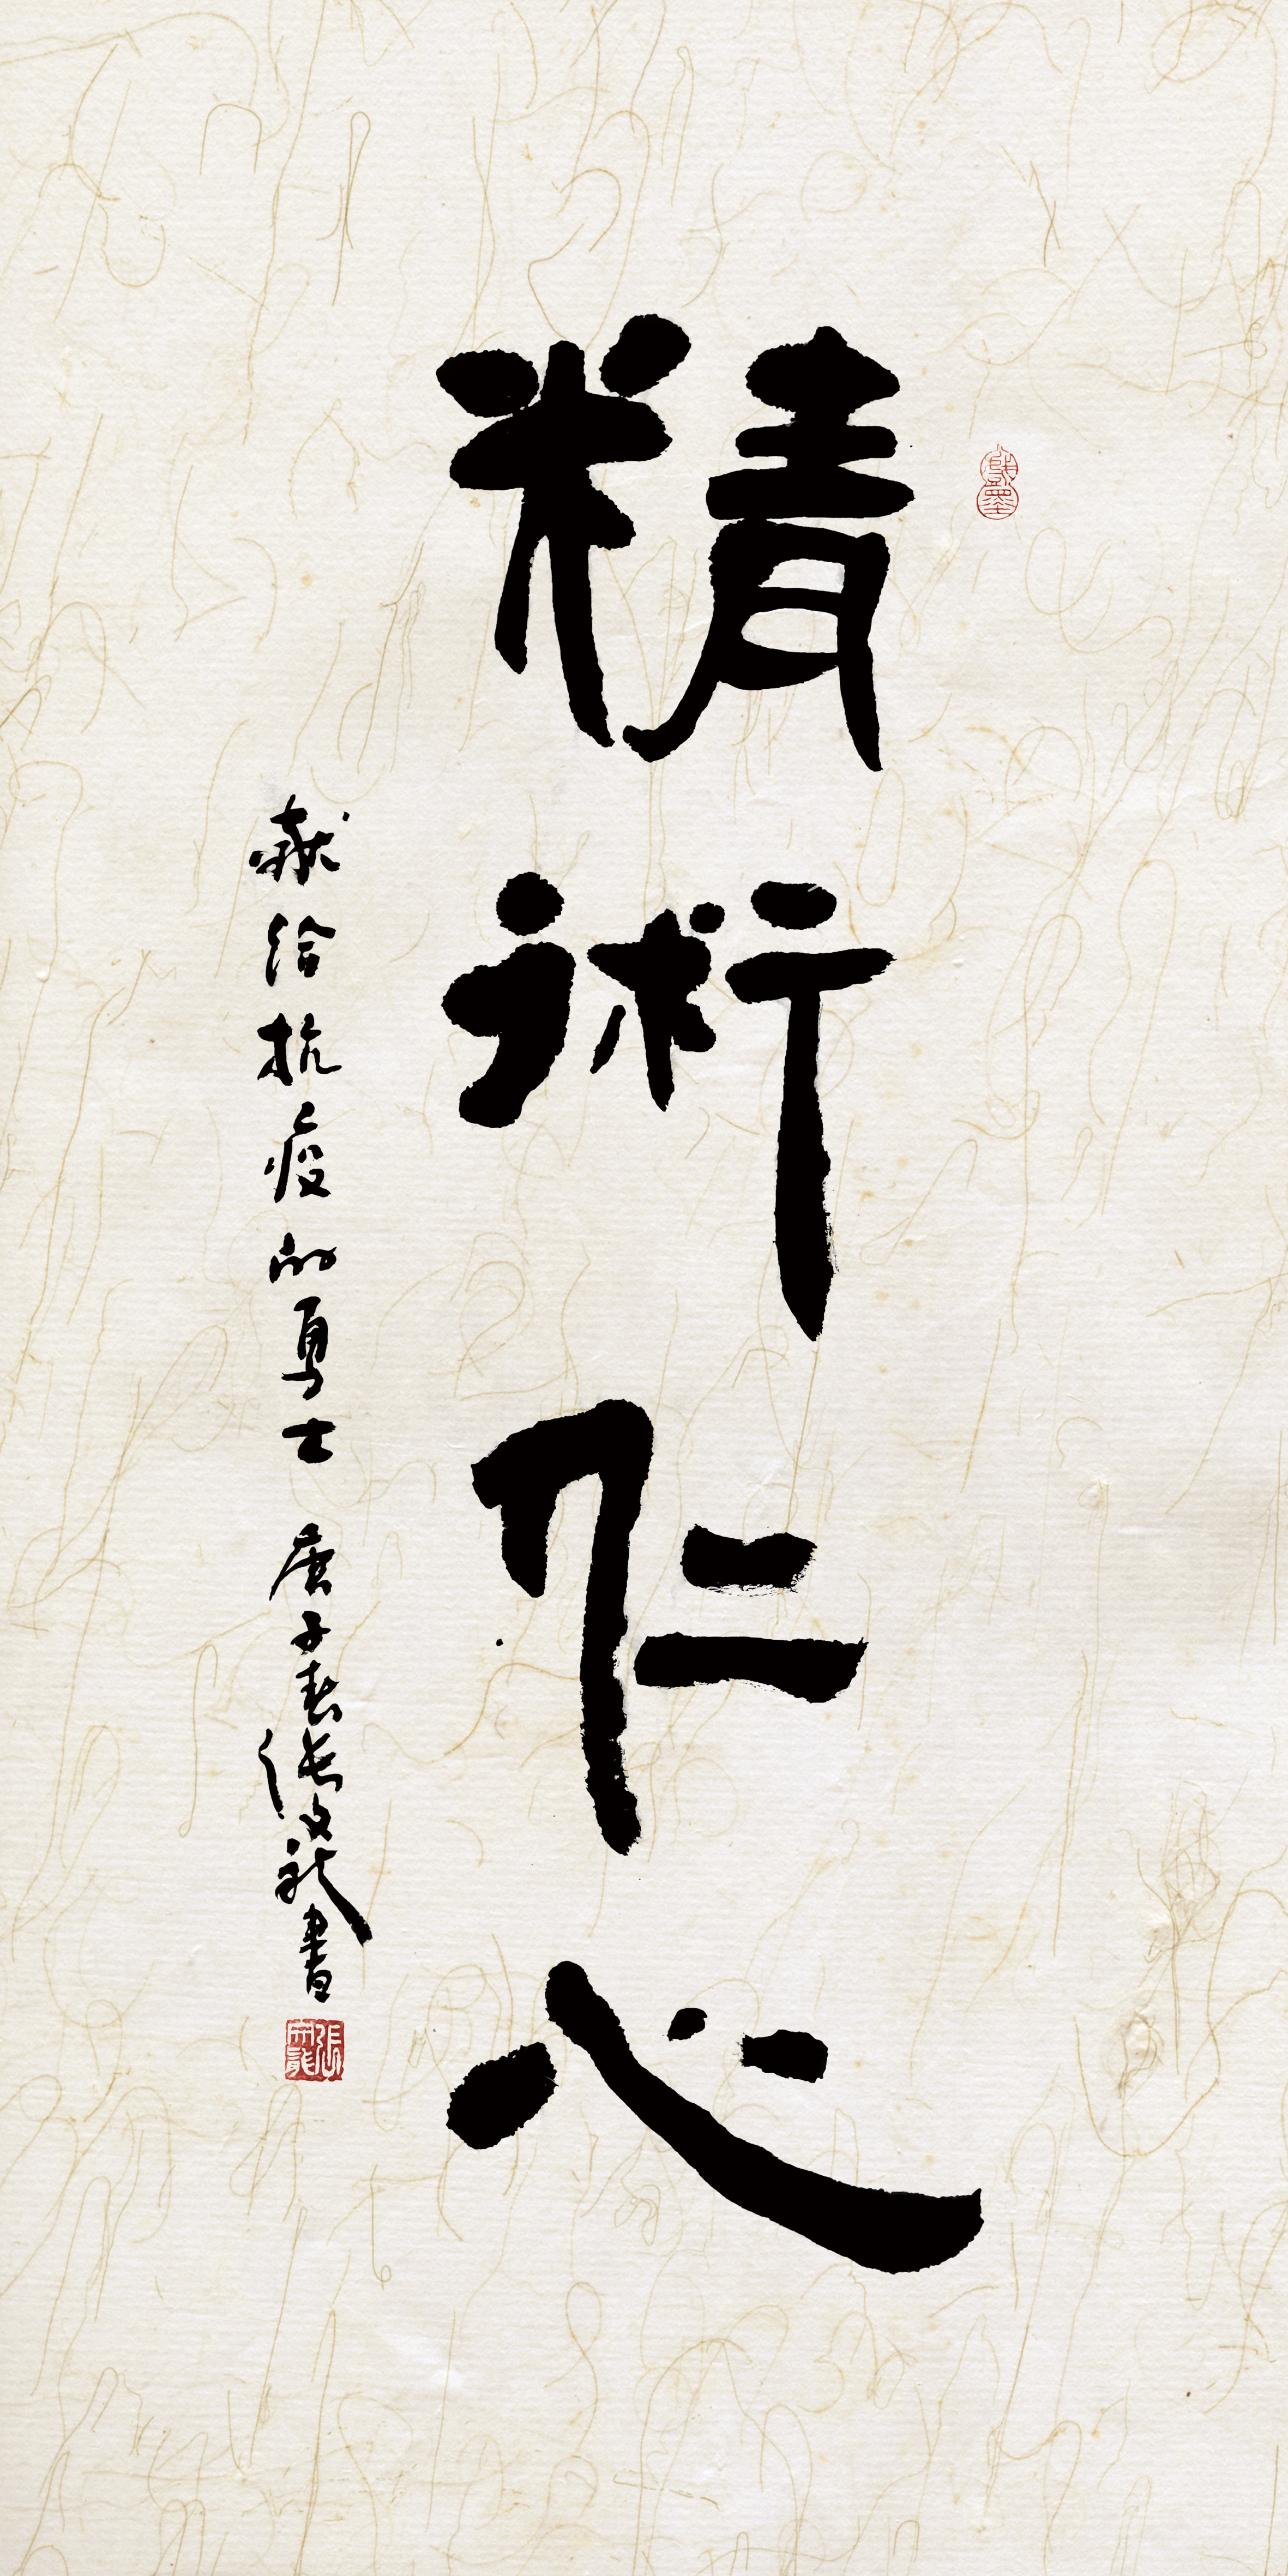 精術仁心
献给抗疫的勇士 庚子春 张文龙書